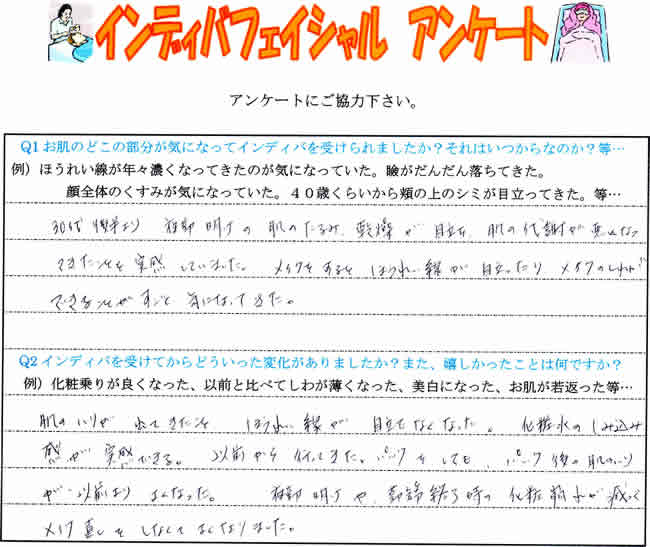 インディバフェイシャル アンケート
アンケートにご協力下さい。
Q1お肌のどこの部分が気になってインディバを受けられましたか？それはいつからなのか？等…
例）ほうれい線が年々濃くなってきたのが気になっていた。瞼がだんだん落ちてきた。
顔全体のくすみが気になっていた。４０歳くらいから頬の上のシミが目立ってきた。等…
30代後半より 夜勤明けの肌のたるみ、乾燥が目立ち、肌の代謝が悪くなっ
てきたことを実感していました。メイクをするとほうれい線が目立ったり メイクのしわが
できることがすごく気になってきた。
Q2インディバを受けてからどういった変化がありましたか？また、嬉しかったことは何ですか？
例）化粧乗りが良くなった、以前と比べてしわが薄くなった、美白になった、お肌が若返った等…
肌のハリが出てきたこと ほうれい線が目立たなくなった。化粧水のしみ込み
感が実感できる。以前から行ってきた。パックをしても、パック後の肌のハリ
が以前より よくなった。夜勤明けや、勤務終了時の化粧崩れが減って
メイク直しをしなくてよくなりました。